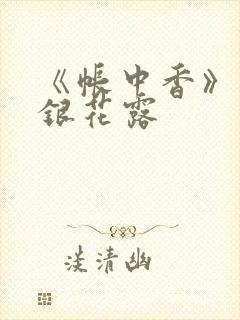 《帐中香》
银花露
淡清幽